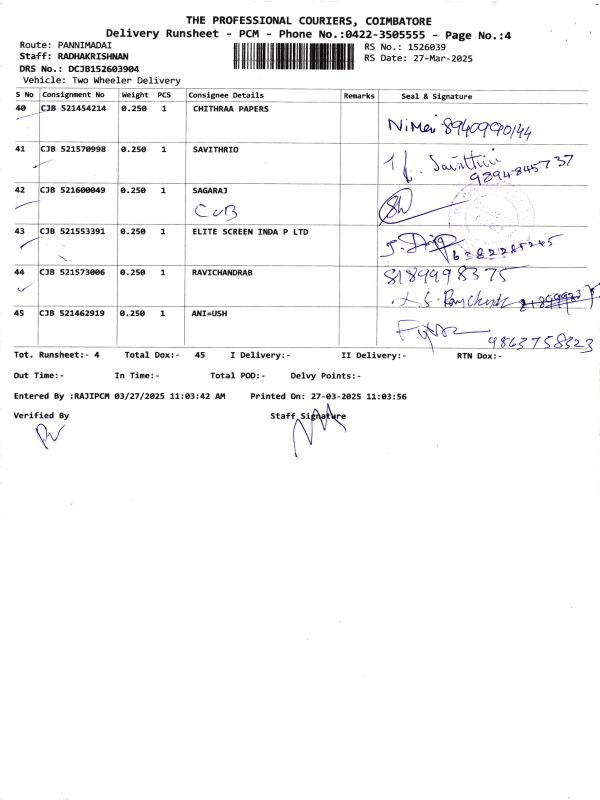 THE PROFESSIONAL COURIERS, COIMBATORE
Delivery Runsheet - PCM - Phone No.:0422-3505555 - Page No.:4
Route: PANNIMADAI
RS No.: 1526039
Staff: RADHAKRISHNAN
RS Date: 27-Mar-2025
DRS No.: DCJB152603904
Vehicle: Two Wheeler Delivery
S No Consignment No Weight PCS Consignee Details Remarks Seal & Signature
40 CJB 521454214 0.250 1 CHITHRAA PAPERS
8940990144
41 CJB 521570998 0.250 1 SAVITHRIO
Savithri
9894845737
42 CJB 521600049 0.250 1 SAGARAJ
CUB
43 CJB 521553391 0.250 1 ELITE SCREEN INDA P LTD
6382285245
44 CJB 521573006 0.250 1 RAVICHANDRAB
8189998375
45 CJB 521462919 0.250 1 ANI=USH
9863758323
Tot. Runsheet:- 4 Total Dox:- 45 I Delivery:- II Delivery:- RTN Dox:-
Out Time:- In Time:- Total POD:- Delvy Points:-
Entered By :RAJIPCM 03/27/2025 11:03:42 AM Printed On: 27-03-2025 11:03:56
Verified By Staff Signature